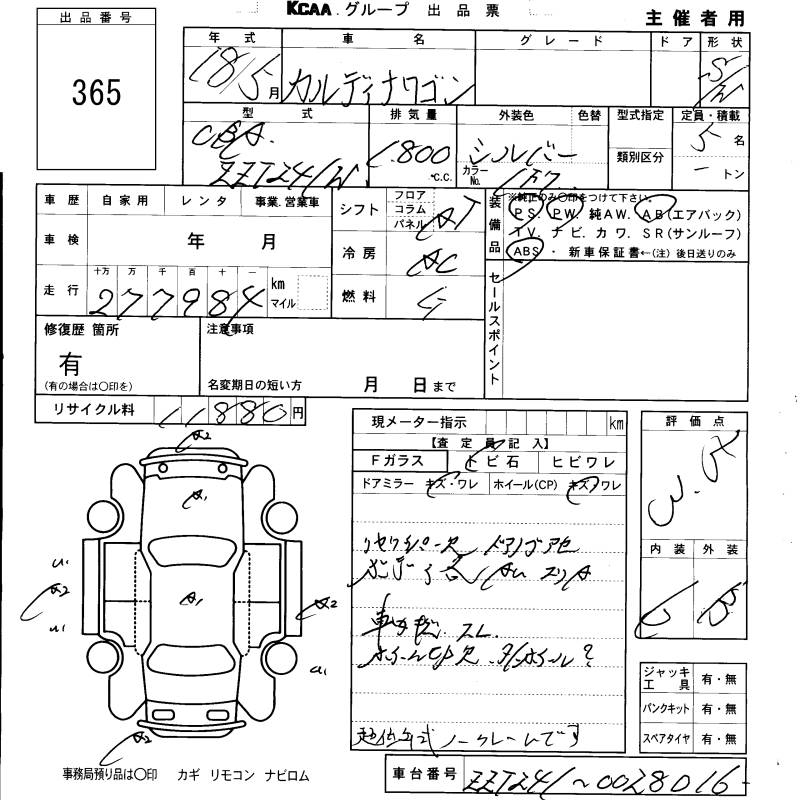 KCAA グループ 出品票
主催者用
出品番号
365
年式 車名 グレード ドア 形状
18/5月 カルディナワゴン S/W
型式 排気量 外装色 色替 型式指定 定員・積載
CBA. 1,800 °C.C. シルバー 5名
ZZT241W カラーNo. 1F7 類別区分 ートン
車歴 自家用 レンタ 事業.営業車
シフト フロア コラム パネル AT
装備品 ※純正のみ〇印をつけて下さい。
PS. PW. 純AW. AB(エアバック)
TV. ナビ. カワ. SR(サンルーフ)
ABS ・ 新車保証書←(注)後日送りのみ
車検 年 月
冷房 AC
走行 十万 万 千 百 十 一
277984 km マイル
燃料 G
セールスポイント
修復歴 箇所
有
(有の場合は〇印を)
注意事項
名変期日の短い方 月 日まで
リサイクル料 11880円
現メーター指示 km
【査定員記入】
Fガラス トビ石 ヒビワレ
ドアミラー キズ・ワレ ホイール(CP) キズ・ワレ
評価点
内装 外装
C B
車内
ホイールCP欠
ノークレームです
A2
A1
A1
U1
A2
U1
A2
A2
ジャッキ工具 有・無
パンクキット 有・無
スペアタイヤ 有・無
事務局預り品は〇印 カギ リモコン ナビロム
車台番号 ZZT241~0028016-